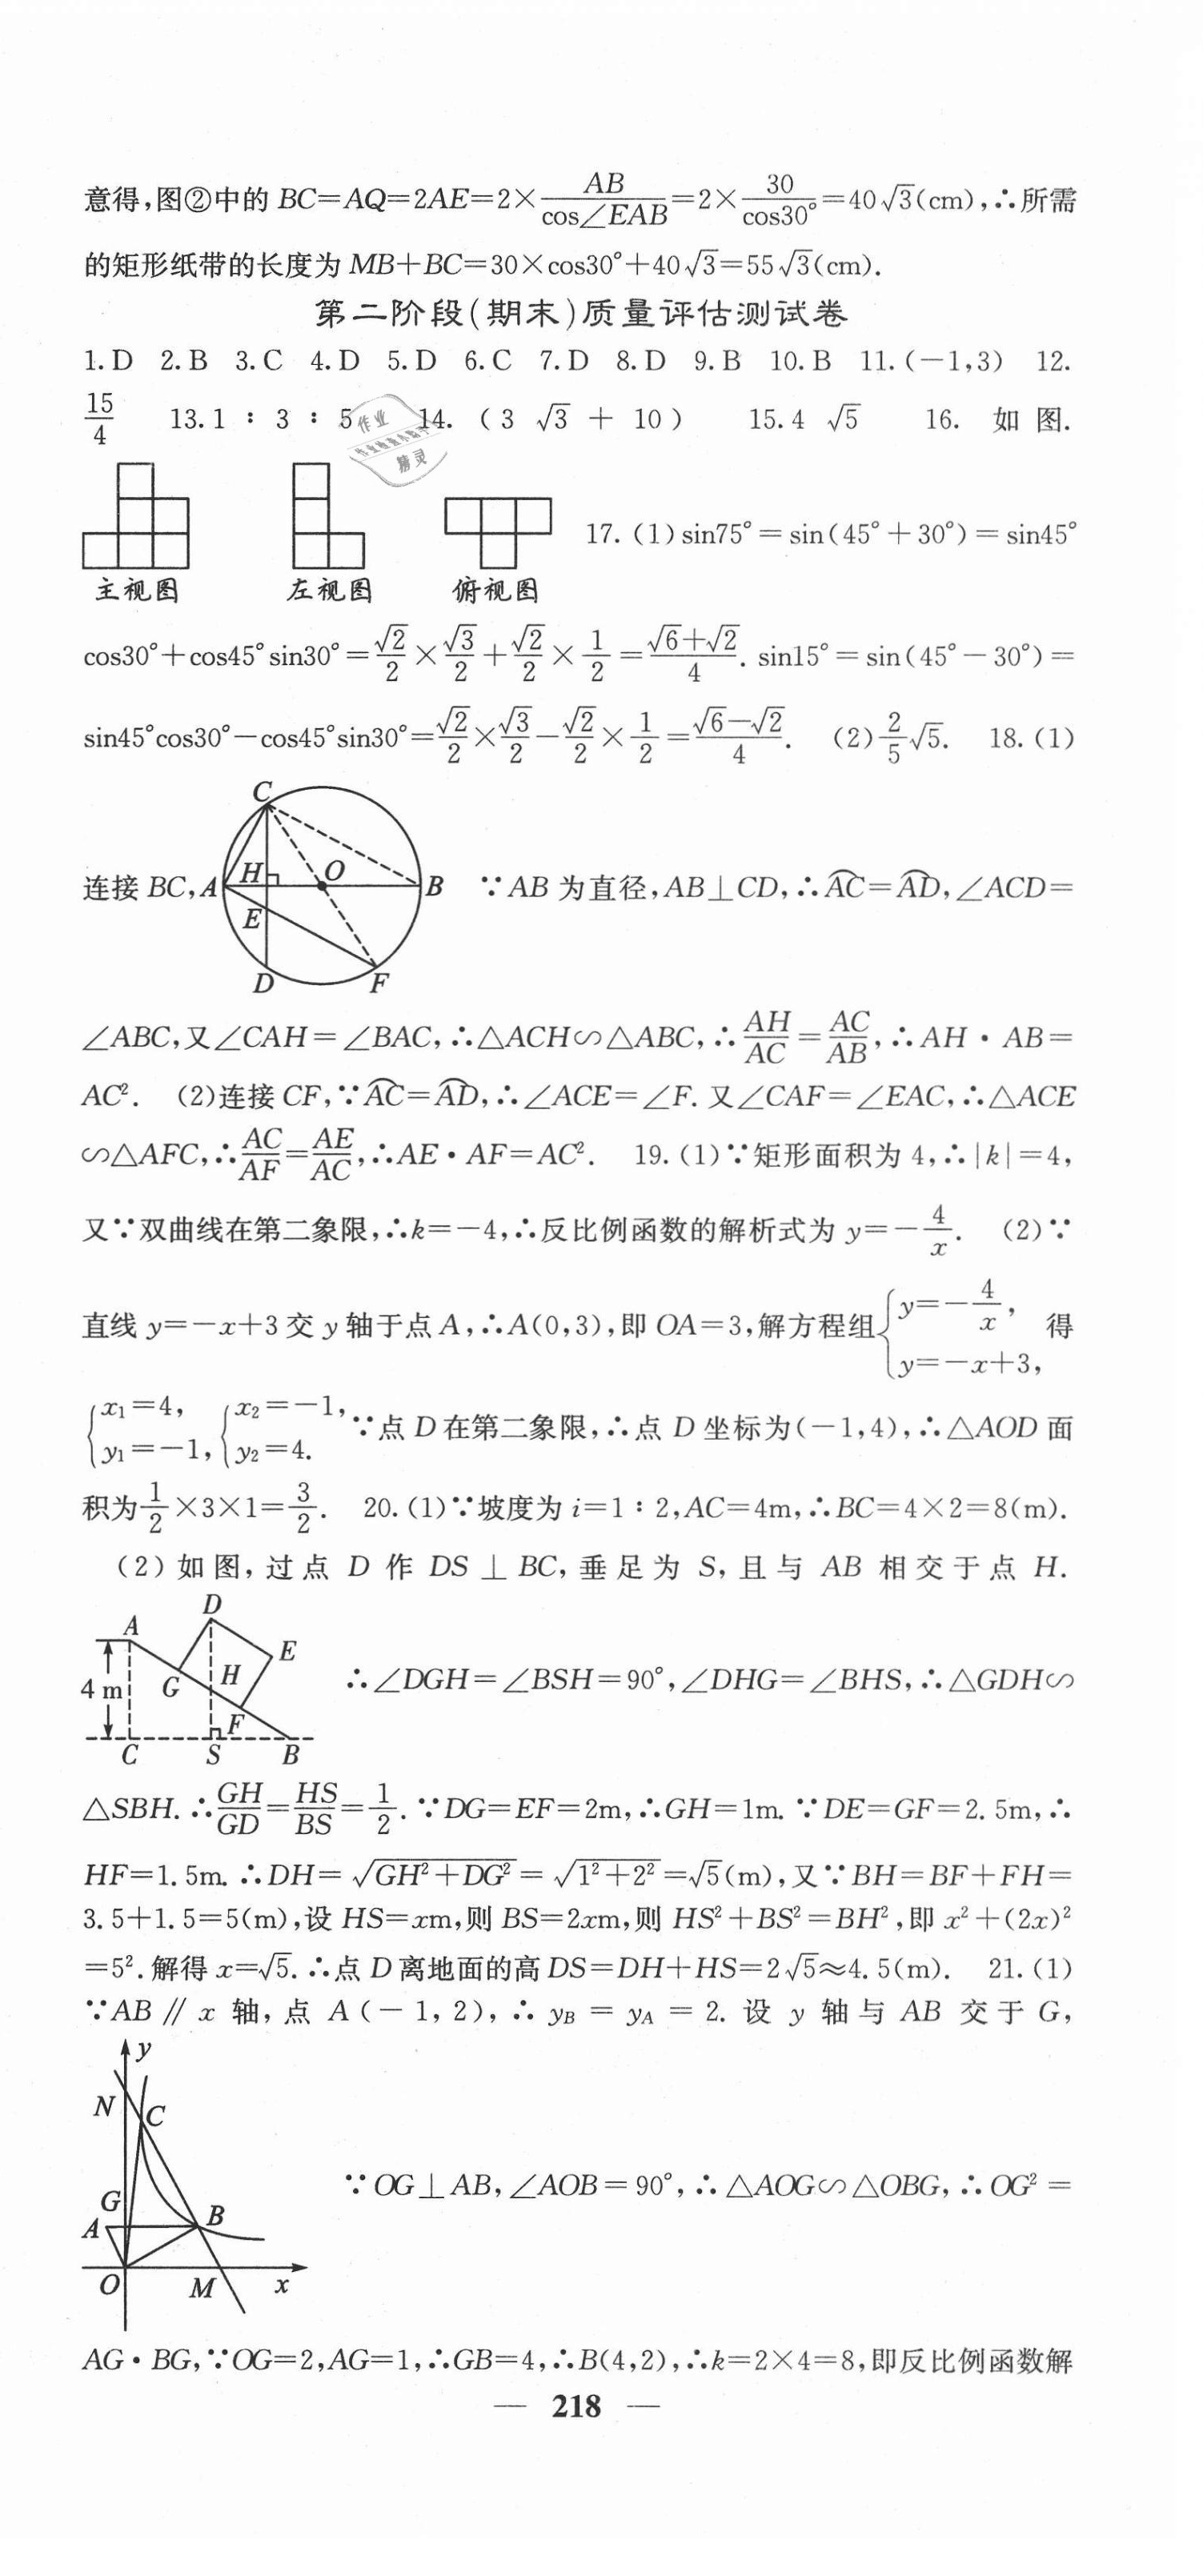 意得,图②中的 BC=AQ=2AE=2×AB/cos∠EAB=2×30/cos30°=40√3(cm),∴所需
的矩形纸带的长度为 MB+BC=30×cos30°+40√3=55√3(cm).
第二阶段(期末)质量评估测试卷
1. D 2. B 3. C 4. D 5. D 6. C 7. D 8. D 9. B 10. B 11. (-1,3) 12.
15/4 13. 1 : 3 : 5 14. (3√3 + 10) 15. 4√5 16. 如图.
作业
精灵
主视图 左视图 俯视图
17. (1) sin75°=sin(45°+30°)=sin45°
cos30°+cos45°sin30°=√2/2×√3/2+√2/2×1/2=(√6+√2)/4. sin15°=sin(45°-30°)=
sin45°cos30°-cos45°sin30°=√2/2×√3/2-√2/2×1/2=(√6-√2)/4. (2) 2/5√5. 18. (1)
连接 BC,
C
A H O B
E
D F
∵AB 为直径,AB⊥CD,∴⌒AC=⌒AD,∠ACD=
∠ABC,又∠CAH=∠BAC,∴△ACH∽△ABC,∴AH/AC=AC/AB,∴AH·AB=
AC². (2)连接 CF,∵⌒AC=⌒AD,∴∠ACE=∠F. 又∠CAF=∠EAC,∴△ACE
∽△AFC,∴AC/AF=AE/AC,∴AE·AF=AC². 19. (1)∵矩形面积为 4,∴|k|=4,
又∵双曲线在第二象限,∴k=-4,∴反比例函数的解析式为 y=-4/x. (2)∵
直线 y=-x+3 交 y 轴于点 A,∴A(0,3),即 OA=3,解方程组{y=-4/x, y=-x+3, 得
{x₁=4, y₁=-1, {x₂=-1, y₂=4. ∵点 D 在第二象限,∴点 D 坐标为(-1,4),∴△AOD 面
积为1/2×3×1=3/2. 20. (1)∵坡度为 i=1 : 2,AC=4m,∴BC=4×2=8(m).
(2)如图,过点 D 作 DS⊥BC,垂足为 S,且与 AB 相交于点 H.
D
A
E
4 m G H
F
C S B
∴∠DGH=∠BSH=90°,∠DHG=∠BHS,∴△GDH∽
△SBH.∴GH/GD=HS/BS=1/2.∵DG=EF=2m,∴GH=1m.∵DE=GF=2. 5m,∴
HF=1. 5m.∴DH=√(GH²+DG²)=√(1²+2²)=√5(m),又∵BH=BF+FH=
3. 5+1. 5=5(m),设 HS=xm,则 BS=2xm,则 HS²+BS²=BH²,即 x²+(2x)²
=5².解得 x=√5.∴点 D 离地面的高 DS=DH+HS=2√5≈4. 5(m). 21. (1)
∵AB∥x 轴,点 A(-1,2),∴y_B=y_A=2. 设 y 轴与 AB 交于 G,
y
N C
G
A B
O M x
∵OG⊥AB,∠AOB=90°,∴△AOG∽△OBG,∴OG²=
AG·BG,∵OG=2,AG=1,∴GB=4,∴B(4,2),∴k=2×4=8,即反比例函数解
— 218 —